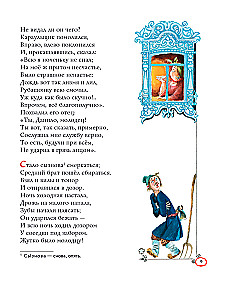 Не ведал ли он чего?
Караульщик помолился,
Вправо, влево поклонился
И, прокашлявшись, сказал:
«Всю я ноченьку не спал;
На моё ж притом несчастье,
Было страшное ненастье:
Дождь вот так ливмя и лил,
Рубашонку всю смочил.
Уж куда как было скучно!..
Впрочем, всё благополучно».
Похвалил его отец:
«Ты, Данило, молодец!
Ты вот, так сказать, примерно,
Сослужил мне службу верно,
То есть, будучи при всём,
Не ударил в грязь лицом».
Стало сызнова* смеркаться;
Средний брат пошёл сбираться.
Взял и вилы и топор
И отправился в дозор.
Ночь холодная настала,
Дрожь на малого напала,
Зубы начали плясать;
Он ударился бежать —
И всю ночь ходил дозором
У соседки под забором.
Жутко было молодцу!
* Сызнова — снова, опять.
9